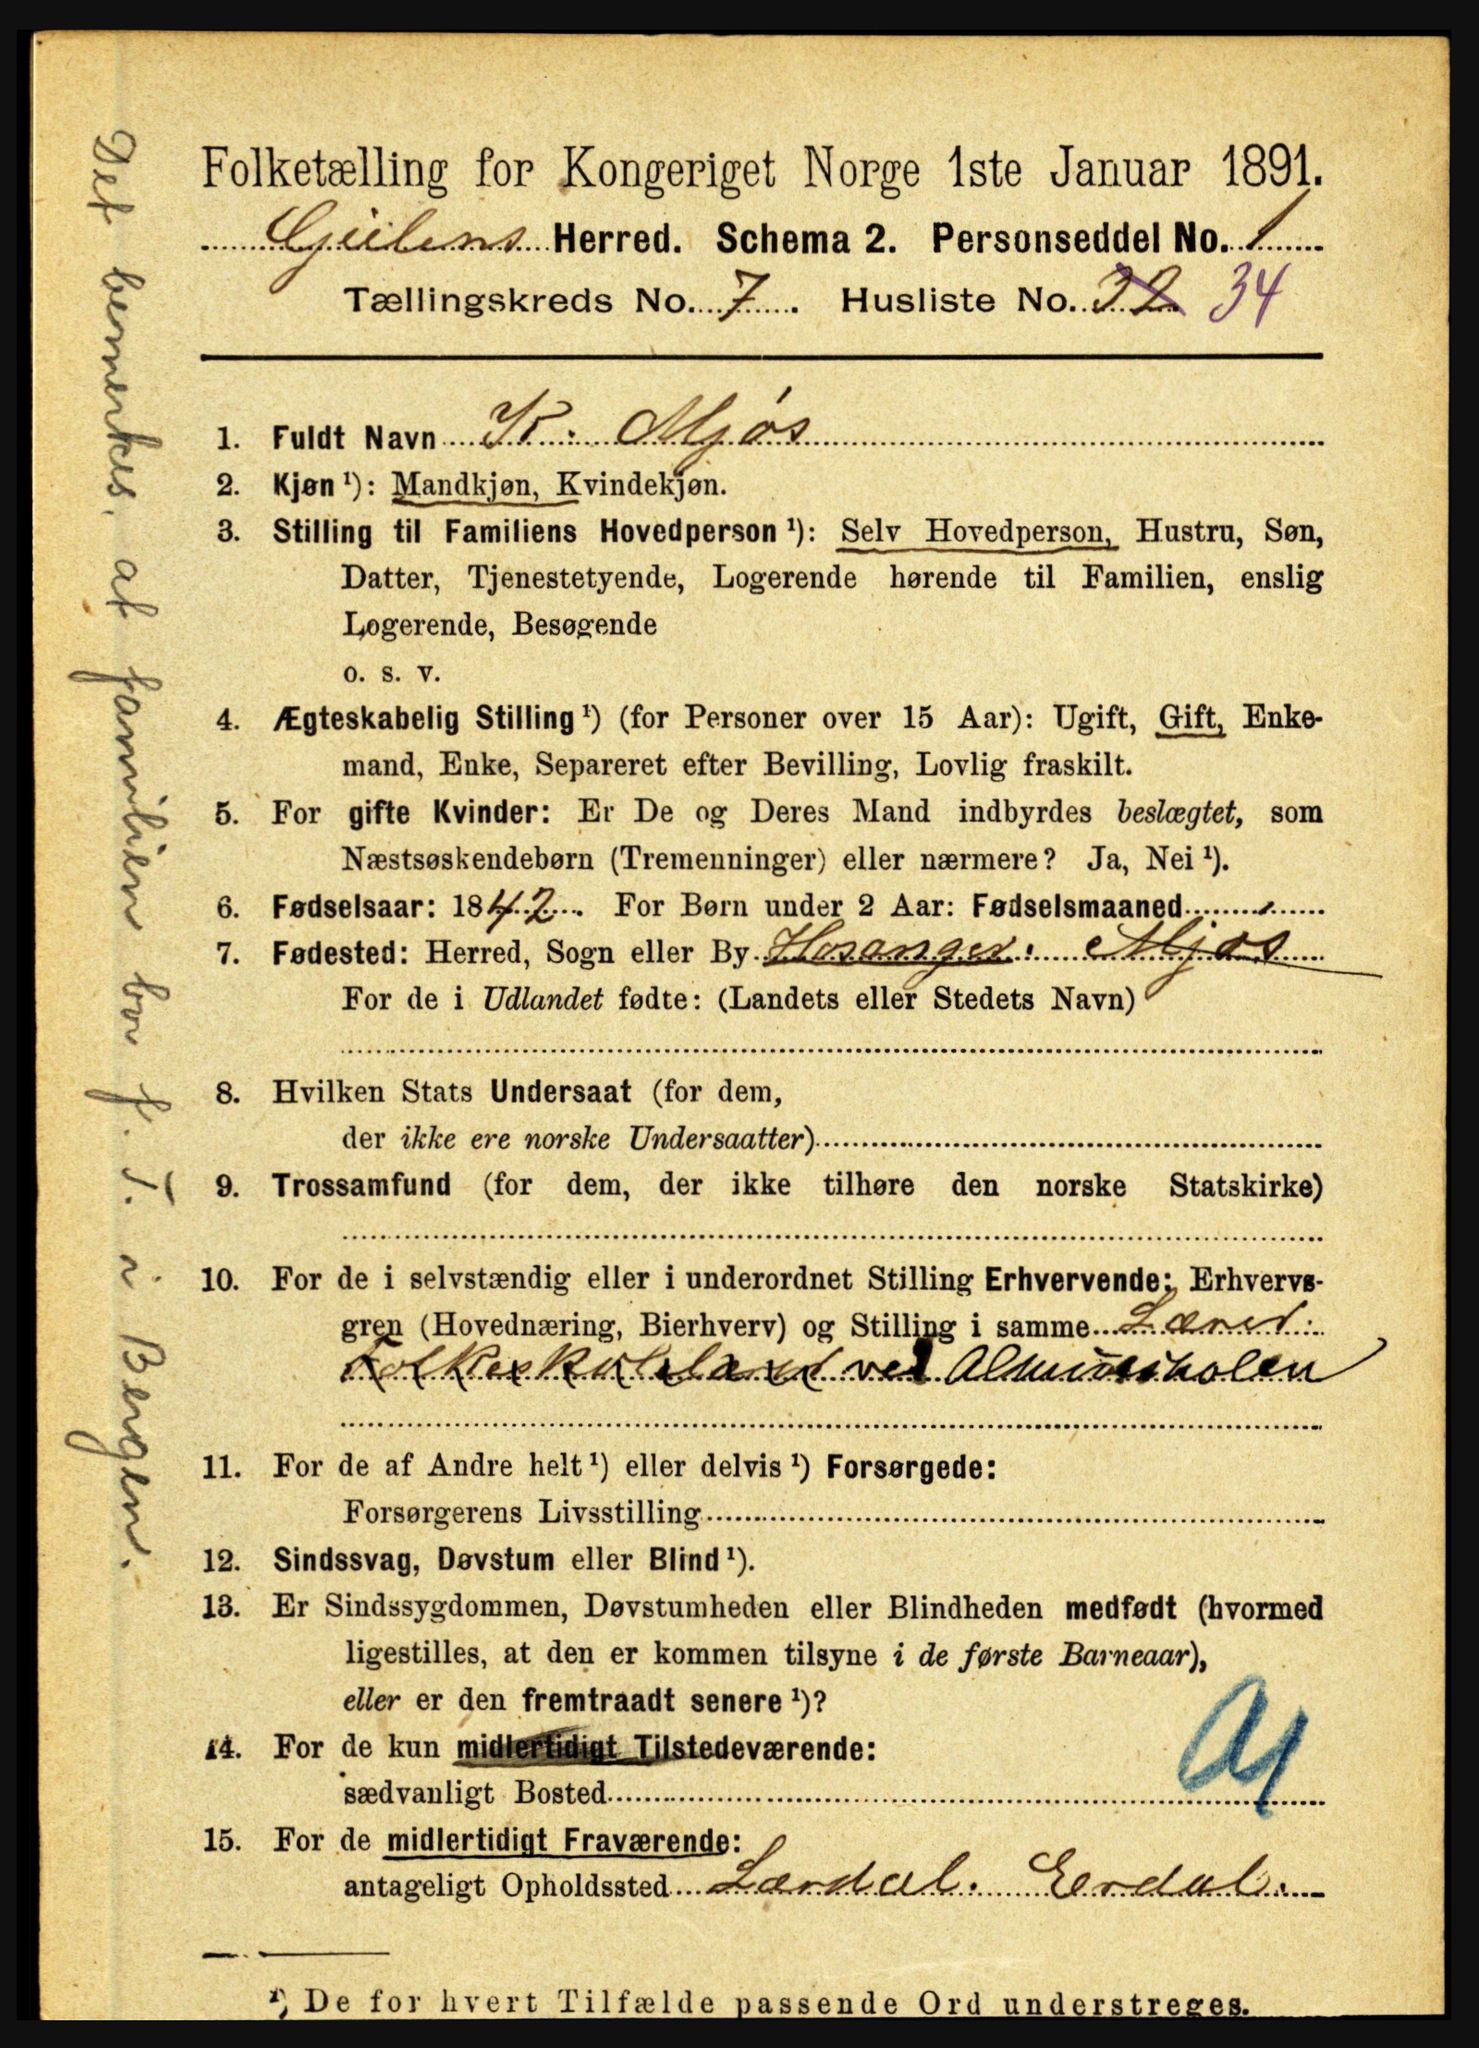 Folketælling for Kongeriget Norge 1ste Januar 1891.
Gulens Herred. Schema 2. Personseddel No. 1
Tællingskreds No. 7. Husliste No. 32 34
1. Fuldt Navn K. Mjøs
2. Kjøn ¹): Mandkjøn, Kvindekjøn.
3. Stilling til Familiens Hovedperson ¹): Selv Hovedperson, Hustru, Søn,
Datter, Tjenestetyende, Logerende hørende til Familien, enslig
Logerende, Besøgende
o. s. v.
4. Ægteskabelig Stilling ¹) (for Personer over 15 Aar): Ugift, Gift, Enke-
mand, Enke, Separeret efter Bevilling, Lovlig fraskilt.
5. For gifte Kvinder: Er De og Deres Mand indbyrdes beslægtet, som
Næstsøskendebørn (Tremenninger) eller nærmere? Ja, Nei ¹).
6. Fødselsaar: 1842. For Børn under 2 Aar: Fødselsmaaned
7. Fødested: Herred, Sogn eller By Hosanger. Mjøs
For de i Udlandet fødte: (Landets eller Stedets Navn)
8. Hvilken Stats Undersaat (for dem,
der ikke ere norske Undersaatter)
9. Trossamfund (for dem, der ikke tilhøre den norske Statskirke)
10. For de i selvstændig eller i underordnet Stilling Erhvervende: Erhvervs-
gren (Hovednæring, Bierhverv) og Stilling i samme Lærer.
ved Almueskolen
11. For de af Andre helt ¹) eller delvis ¹) Forsørgede:
Forsørgerens Livsstilling
12. Sindssvag, Døvstum eller Blind ¹).
13. Er Sindssygdommen, Døvstumheden eller Blindheden medfødt (hvormed
ligestilles, at den er kommen tilsyne i de første Barneaar),
eller er den fremtraadt senere ¹)?
14. For de kun midlertidigt Tilstedeværende:
sædvanligt Bosted
15. For de midlertidigt Fraværende:
antageligt Opholdssted Lærdal. Erdal.
¹) De for hvert Tilfælde passende Ord understreges.
Det bemerkes, at familien bor f. T. i Bergen.